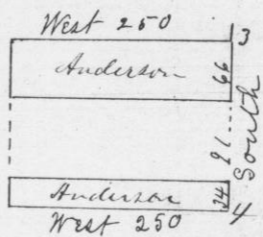 West 250
3
Anderson
66
91
South
Anderson
34
4
West 250